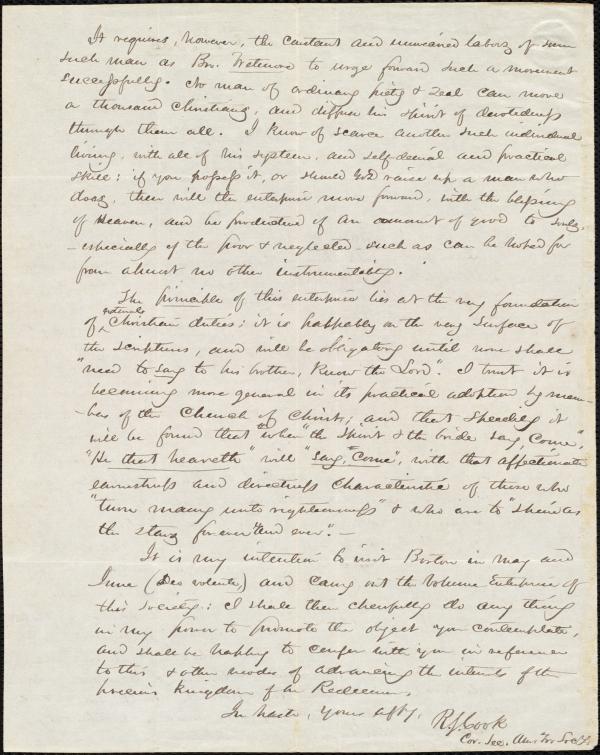 It requires, however, the constant and unwearied labors of some
such man as Bro. Wetmore to urge forward such a movement
successfully. No man of ordinary piety & zeal can move
a thousand Christians, and diffuse his spirit of devotedness
through them all. I know of scarce another such individual
living, with all of his system, and self-denial and practical
skill: if you possess it, or should God raise up a man who
does, then will the enterprise move forward, with the blessing
of Heaven, and be productive of an amount of good to souls,
-especially of the poor & neglected - such as can be hoped for
from almost no other instrumentality.
The principle of this enterprise lies at the very foundation
of Christian duties: it is palpably on the very surface of
the Scriptures, and will be obligatory until none shall
"need to say to his brother, Know the Lord". I trust it is
becoming more general in its practical adoption by mem-
-bers of the Church of Christ; and that speedily it
will be found that when "the Spirit & the bride say, Come",
"He that heareth" will "say, Come", with that affectionate
earnestness and directness characteristic of those who
"turn many unto righteousness" & who are to "shine as
the stars forever and ever". -
It is my intention to visit Boston in May and
June (Deo volente,) and carry out the Volume Enterprise of
this Society: I shall then cheerfully do any thing
in my power to promote the object you contemplate,
and shall be happy to confer with you in reference
to this & other modes of advancing the interests of the
precious kingdom of the Redeemer.
In haste, yours affy,
R. S. Cook
Cor. Sec. Am. Tr. Socy.